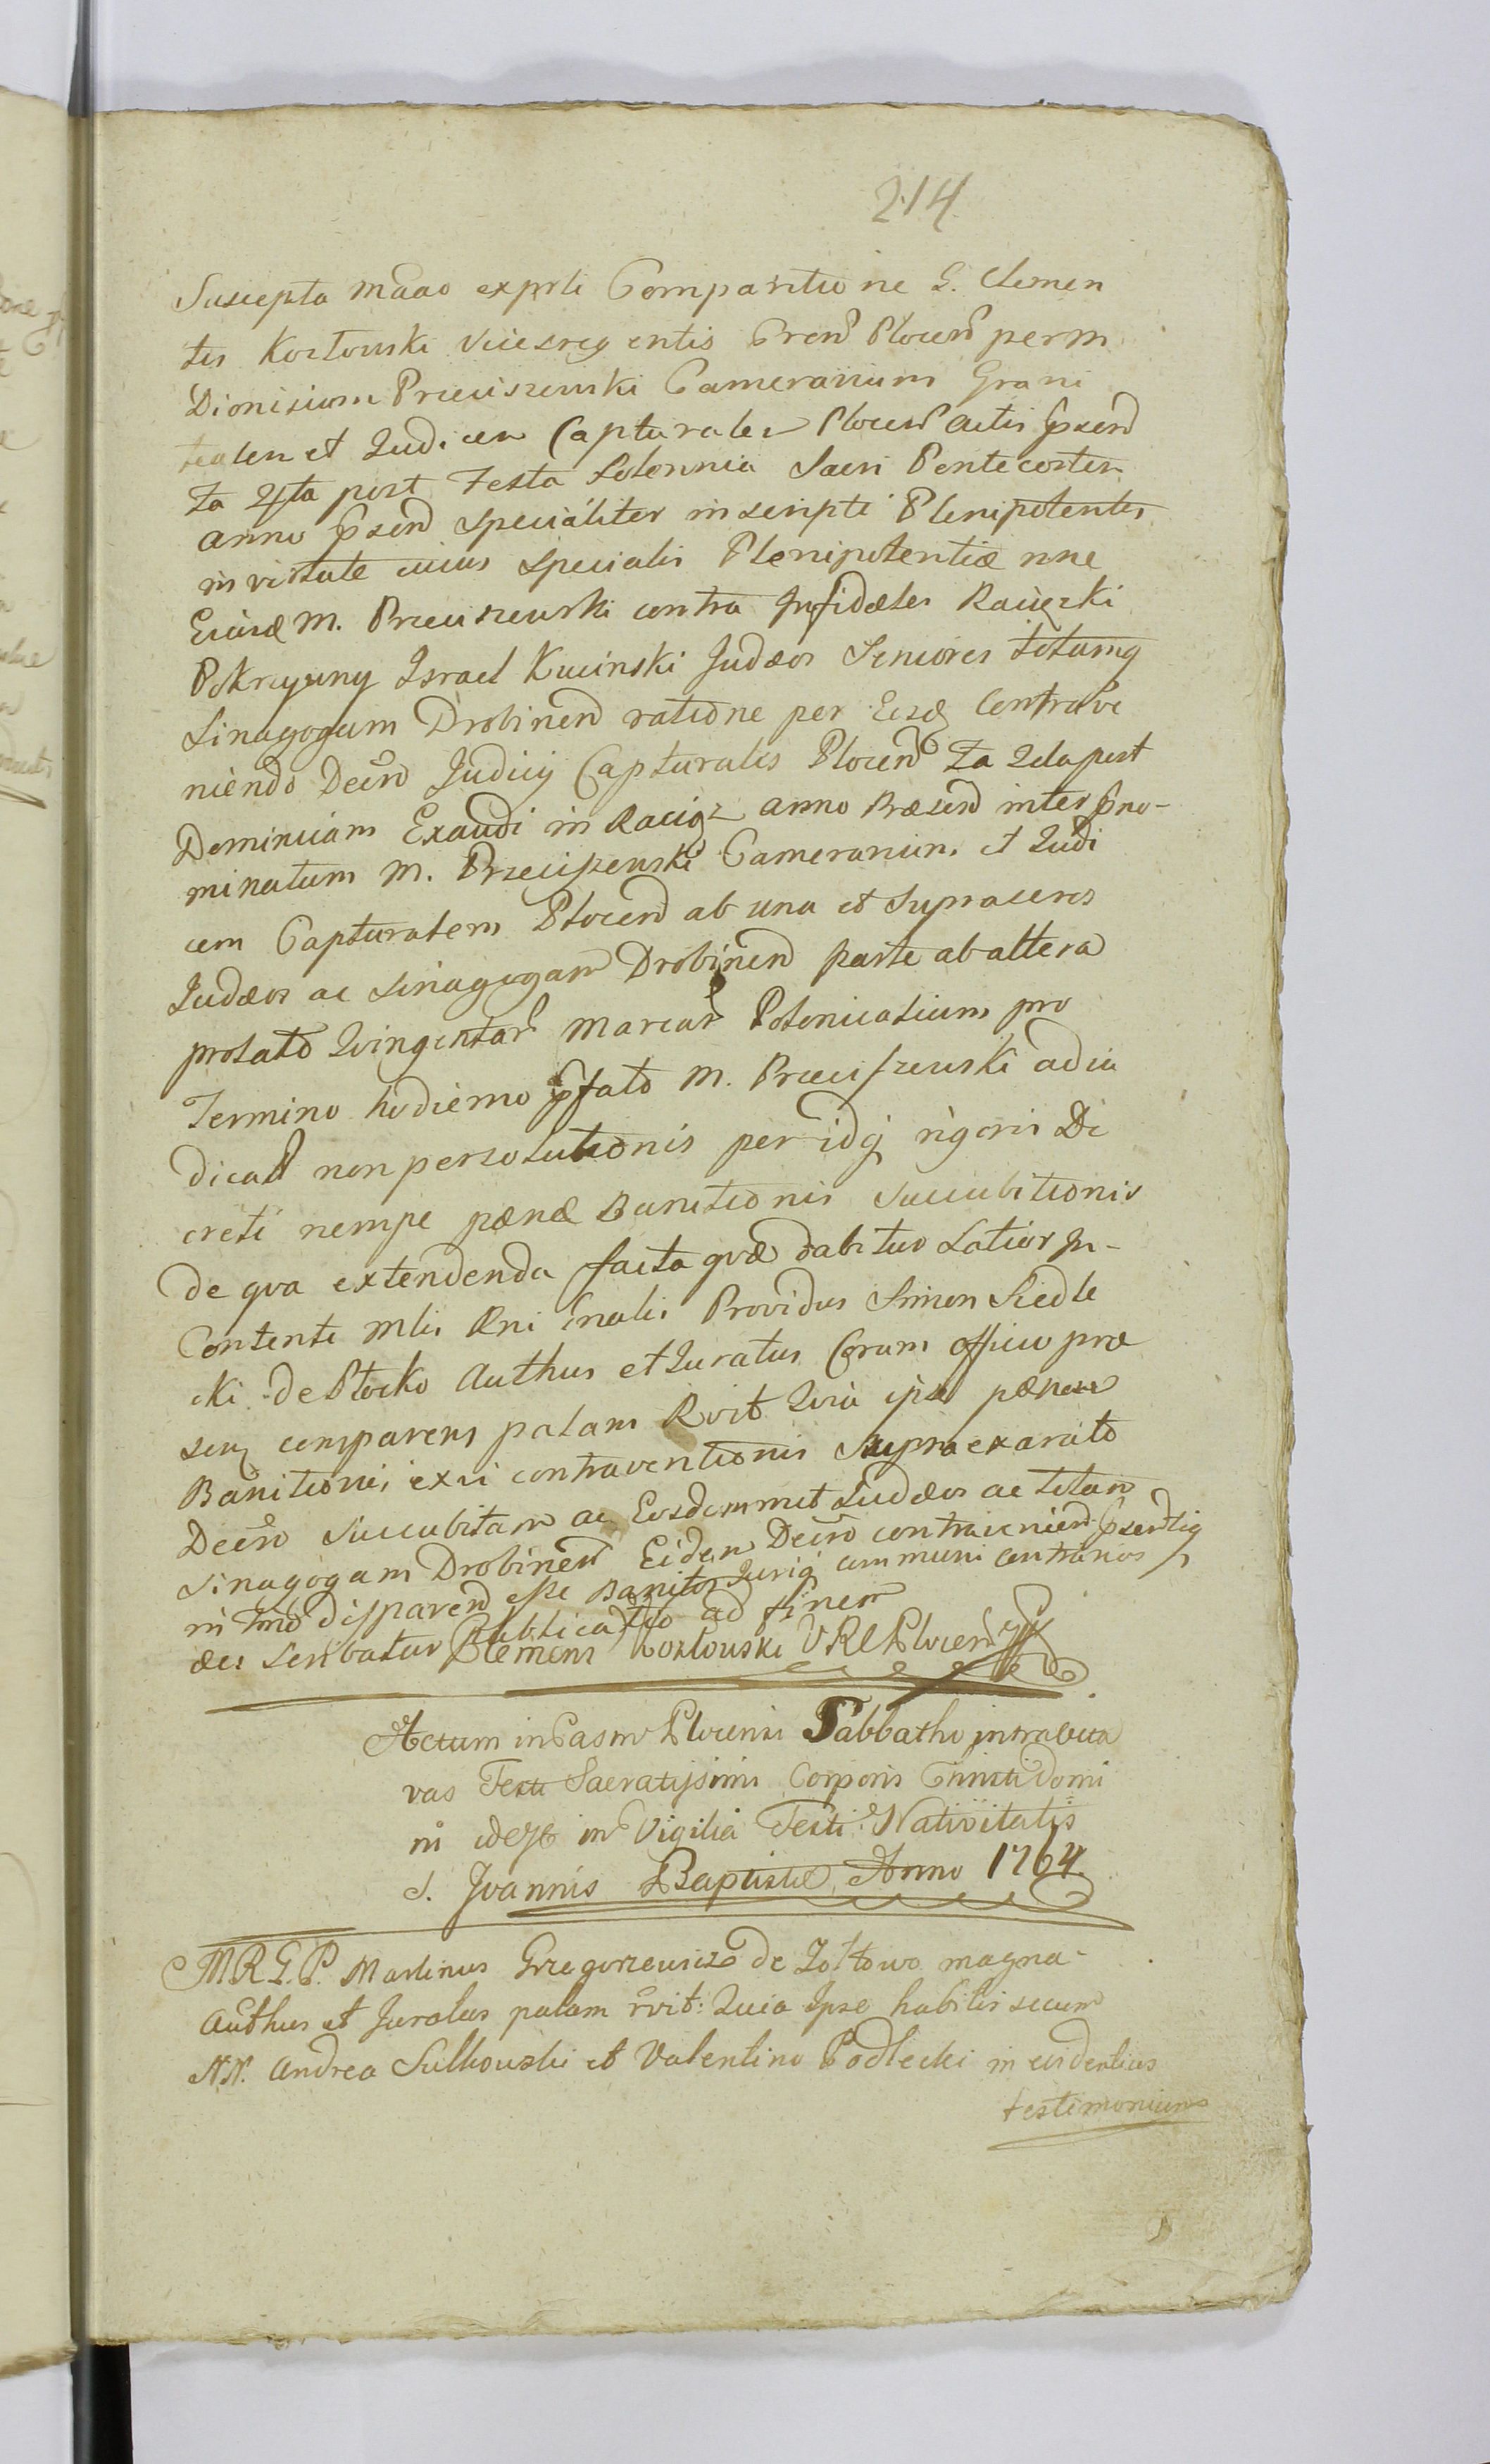 214
Suscepta maao exprti Comparitione G. Clemen
tis Kozłowski Vicesregentis Cren Plocen per M.
Dionisium Przeciszewski Camerarium Grani
tialem et Judicem Capturalem Plocen Actis psend
Fa 4ta post Festa Solennia Sacri Pentecostes
anno psend specialiter inscripti Plenipotentis
in virtute cuius specialis Plenipotentiæ nne
Eiusd M. Przeciszewski contra Infidæles Raciązki
Pokrzywny Israel Kucinski Judæos Seniores totamq
Sinagogam Drobinend ratione per Eosd Contrave
niendo Decro Judicij Capturalis Plocend Fa 2da post
Dominicam Exaudi in Raciąz anno Præsend inter pno-
minatum M. Przeciszewski Camerarium et Judi
cem Capturalem Plocend ab una et supraseros
Judæos ac Sinagogam Drobinend parte ab altera
prolato Quingentar Marcar Polonicalium pro
Termino hodierno pfato M. Przeciszewski adiu
dicat non persolutionis per idq rigoris De
creti nempe pænæ Banitionis succubitionis
de qua extendenda facta quæ dabitur Latior In-
Contenti Mlis Rni Gnalis Providus Simon Siedle
cki de Płocko Authus et Juratus Coram officio præ
senq comparens palam Rvit Quia ipse pænam
Banitionis ex vi contraventionis supra exarato
Decro succubitam ac Eosdemmet Judæos ac totam
Sinagogam Drobinend Eidem Decro contravenien psentiq
in Tmo disparend esse Banitos Juriq communi contrarios
des scribatur Publicavit ad finem
Clemens Kozłowski VRCPlocen mp
Actum in Casro Plocensi Sabbatho intra octa
vas Festi Sacratissimi Corporis Christi Domi
ni idest in Vigilia Festi Nativitatis
S. Joannis Baptistæ Anno 1764
MRGP. Martinus Grzegorzewicz de Zołtowo magna
Authus et Juratus palam rvit: Quia Ipse habitis secum
NN. Andrea Sulkowski et Valentino Podlecki in evidentius
testimonium